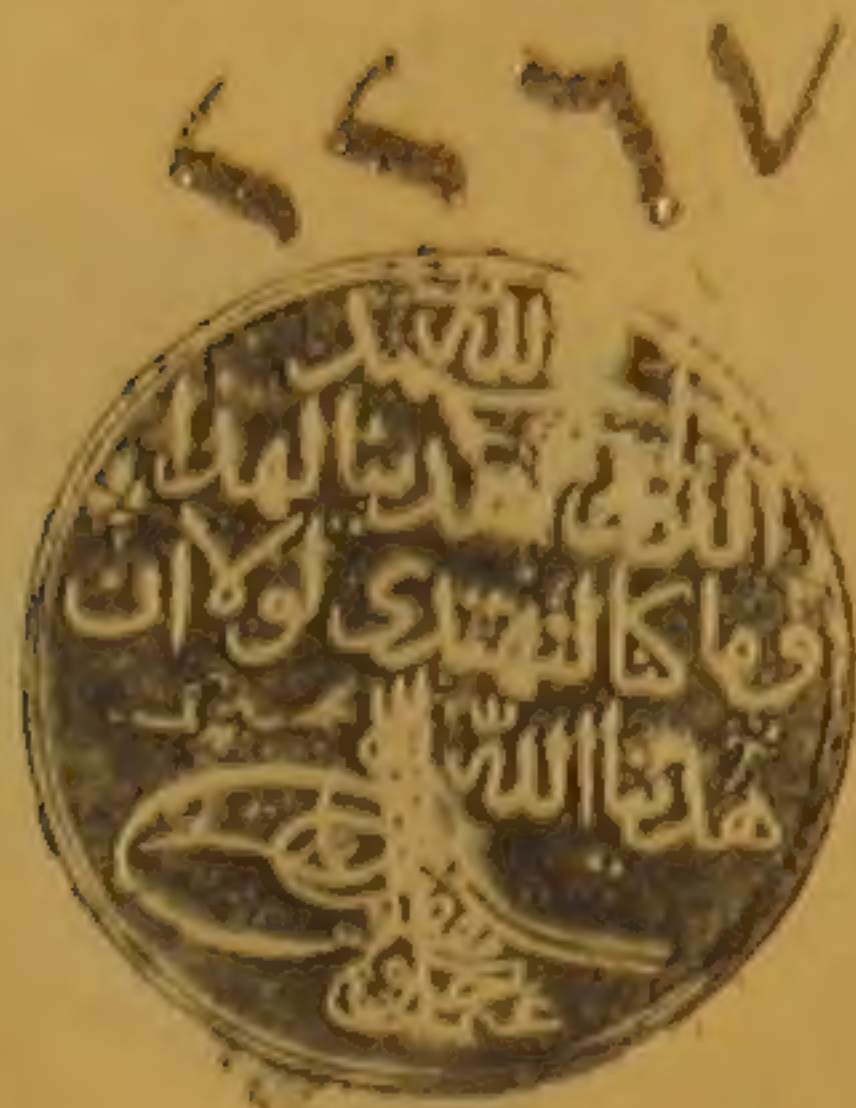 ٢٢٦٧
الحمد لله
الذى هدينا لهذا
وما كنا لنهتدى لولا ان
هدينا الله